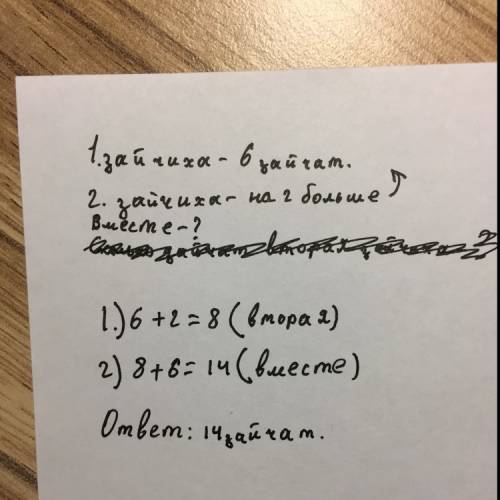 1. зайчиха - 6 зайчат.
2. зайчиха - на 2 больше
Вместе - ?
1.) 6 + 2 = 8 (вторая)
2) 8 + 6 = 14 (вместе)
Ответ: 14 зайчат.